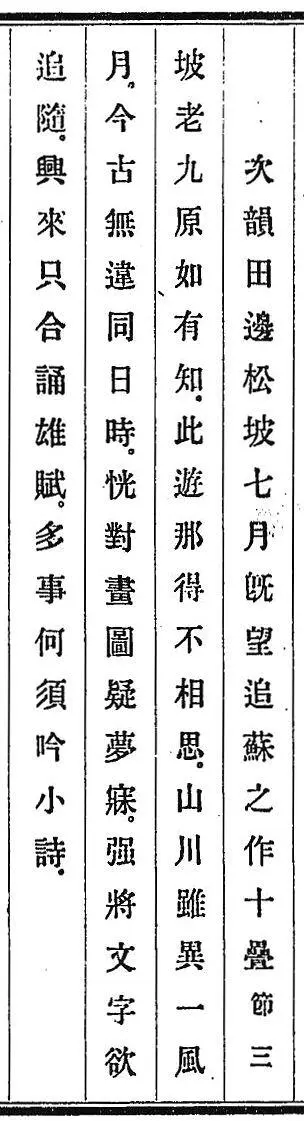 次韻田邊松坡七月既望追蘇之作十疊節三
坡老九原如有知.此遊那得不相思.山川雖異一風
月。今古無違同日時。恍對畫圖疑夢寐。强將文字欲
追隨。興來只合誦雄賦。多事何須吟小詩.